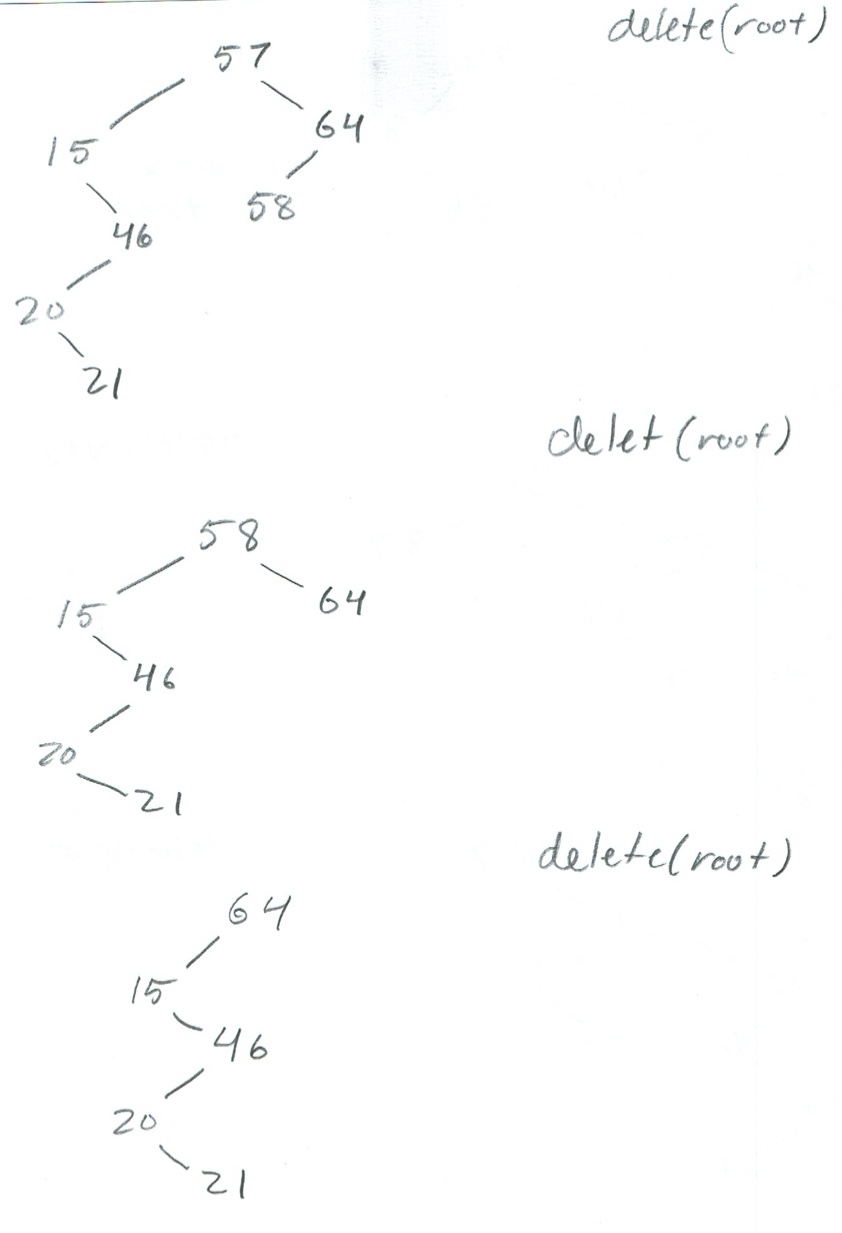 delete(root)
57
64
15
58
46
20
21
delet(root)
58
64
15
46
20
21
delete(root)
64
15
46
20
21